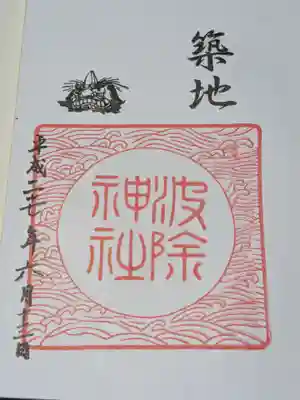 築地
波除
神社
平成二七年六月十二日